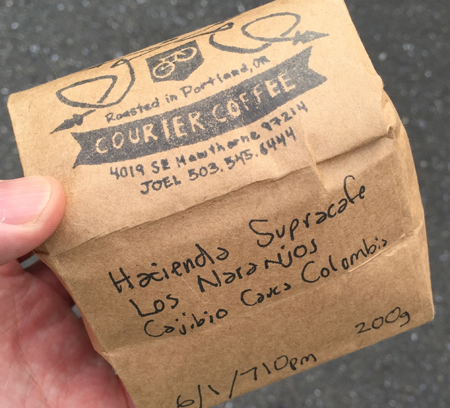 Roasted in Portland, OR
COURIER COFFEE
4019 SE Hawthorne 97214
JOEL 503.545.6444
Hacienda Supracafe
Los Naranjos
Cajibio Cauca Colombia
200g
6/1/710pm